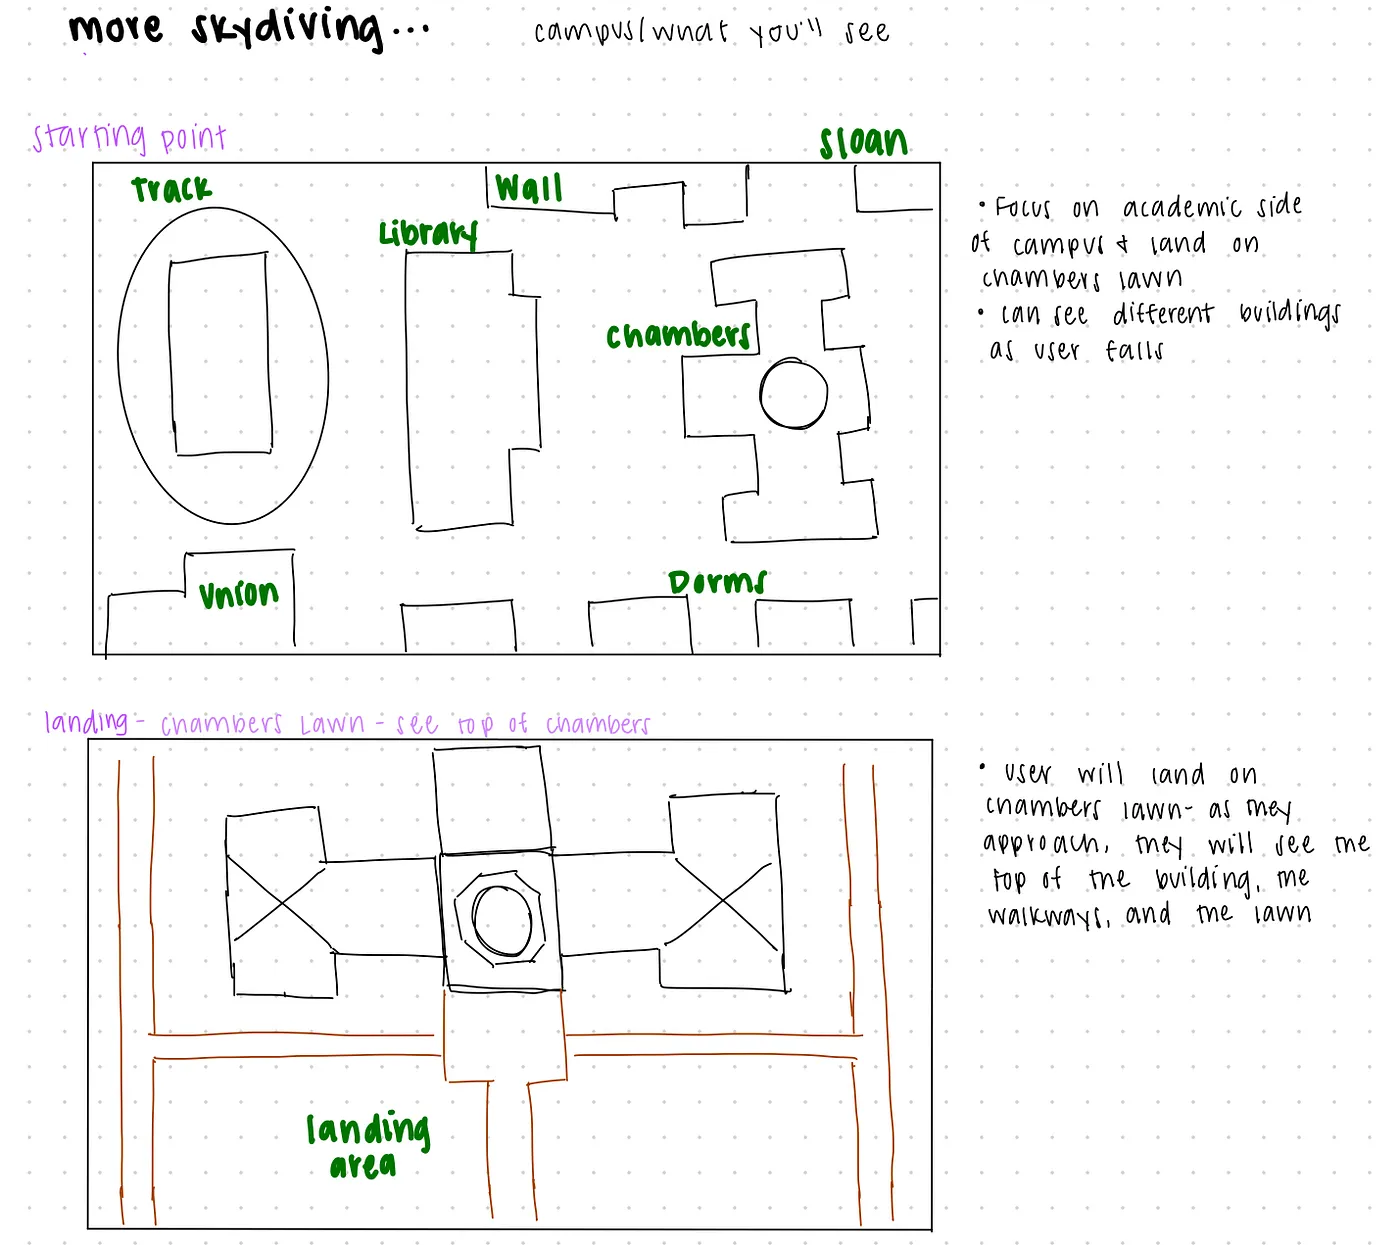 more skydiving...
campus/what you'll see
starting point
Sloan
Track
Wall
Library
Chambers
Union
Dorms
• Focus on academic side
of campus & land on
chambers lawn
• can see different buildings
as user falls
landing - chambers Lawn - see top of chambers
landing
area
• user will land on
chambers lawn- as they
approach, they will see the
top of the building, the
walkways, and the lawn